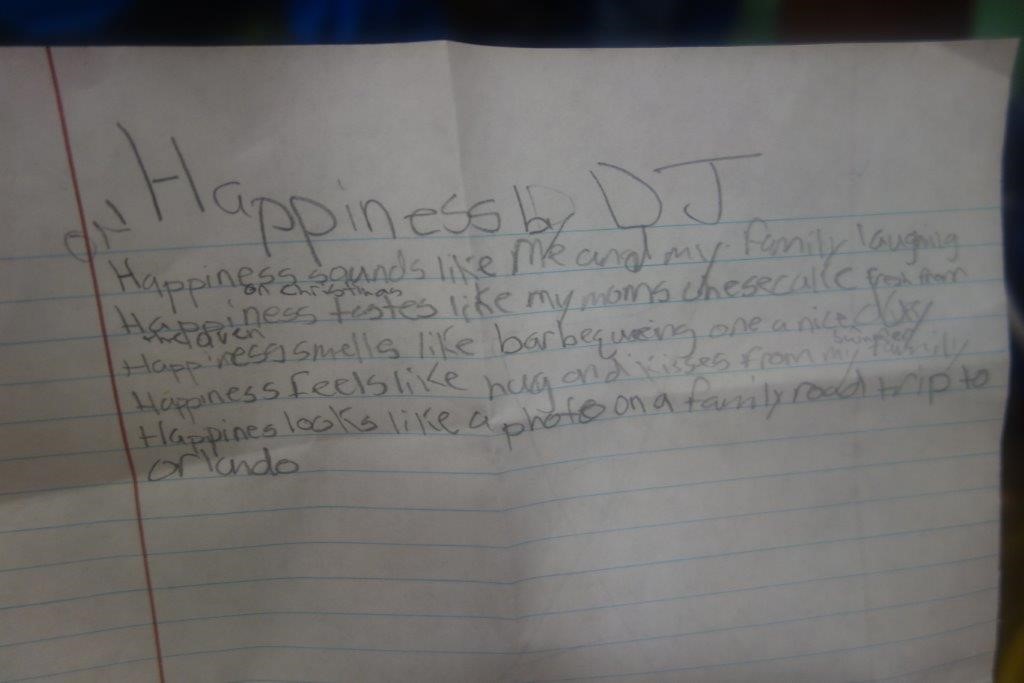 Happiness by DJ
Happiness sounds like me and my family laughing
on Christmas
Happiness tastes like my moms chesecake fresh from
the oven
Happiness smells like barbequeing one a nice day
Happiness feels like hug and kisses from my family
Happines looks like a photo on a family road trip to
orlando